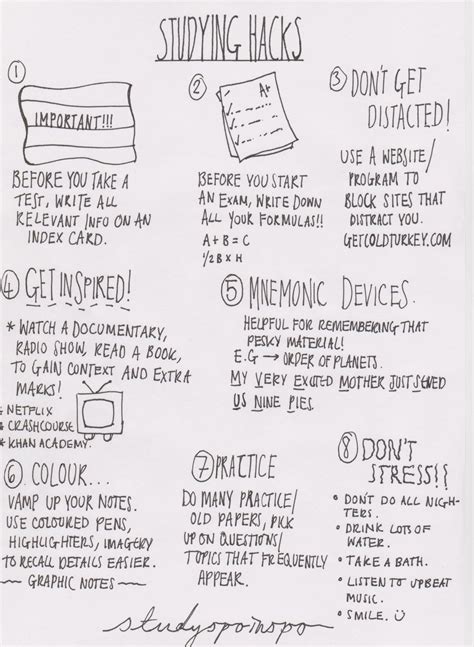 STUDYING HACKS
①
IMPORTANT!!!
BEFORE YOU TAKE A
TEST, WRITE ALL
RELEVANT INFO ON AN
INDEX CARD.
②
A+
BEFORE YOU START
AN EXAM, WRITE DOWN
ALL YOUR FORMULAS!!
A + B = C
1/2 B x H
③ DON'T GET
DISTACTED!
USE A WEBSITE/
PROGRAM TO
BLOCK SITES THAT
DISTRACT YOU.
GETCOLDTURKEY.COM
④ GET INSPIRED!
* WATCH A DOCUMENTARY,
RADIO SHOW, READ A BOOK,
TO GAIN CONTEXT AND EXTRA
MARKS!
* NETFLIX
* CRASHCOURSE
* KHAN ACADEMY.
⑤ MNEMONIC DEVICES.
HELPFUL FOR REMEMBERING THAT
PESKY MATERIAL!
E.G → ORDER OF PLANETS.
MY VERY EXCITED MOTHER JUST SERVED
US NINE PIES.
⑥ COLOUR...
VAMP UP YOUR NOTES.
USE COLOURED PENS,
HIGHLIGHTERS, IMAGERY
TO RECALL DETAILS EASIER.
— GRAPHIC NOTES —
⑦ PRACTICE
DO MANY PRACTICE/
OLD PAPERS, PICK
UP ON QUESTIONS/
TOPICS THAT FREQUENTLY
APPEAR.
⑧ DON'T
STRESS!!
• DON'T DO ALL NIGH-
TERS.
• DRINK LOTS OF
WATER.
• TAKE A BATH.
• LISTEN TO UPBEAT
MUSIC.
• SMILE. Ü
studyspoinspo